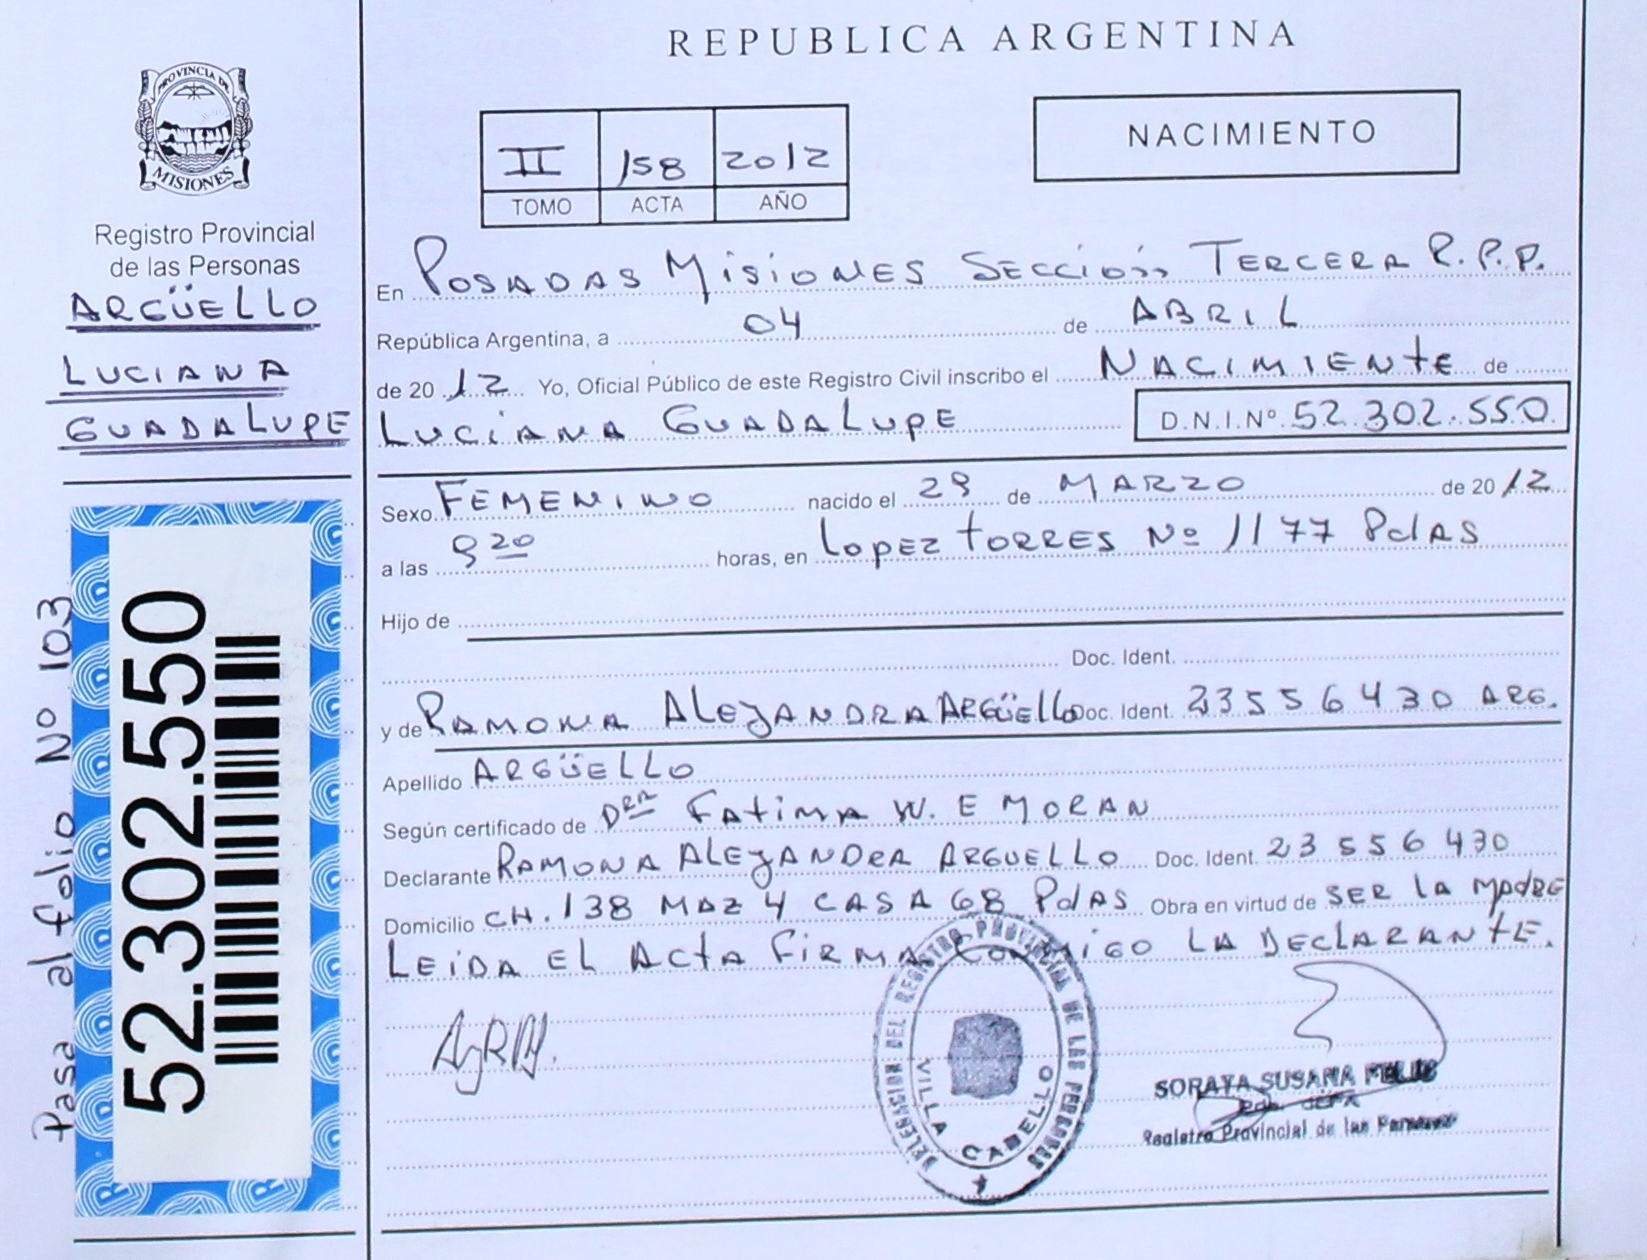 REPUBLICA ARGENTINA
PROVINCIA DE
MISIONES
Registro Provincial
de las Personas
ARGÜELLO
LUCIANA
GUADALUPE
Pasa al folio No 103
52.302.550
II 158 2012
TOMO ACTA AÑO
NACIMIENTO
En POSADAS MISIONES SECCIÓN TERCERA R.P.P.
República Argentina, a 04 de ABRIL
de 2012 Yo, Oficial Público de este Registro Civil inscribo el NACIMIENTE de
LUCIANA GUADALUPE D.N.I.Nº 52.302.550.
Sexo FEMENINO nacido el 29 de MARZO de 2012
a las 9 20 horas, en LOPEZ TORRES Nº 1177 PdAS
Hijo de
Doc. Ident.
y de RAMONA ALEJANDRA ARGÜELLO Doc. Ident. 23556430 ARG.
Apellido ARGÜELLO
Según certificado de DRA FATIMA W. E MORAN
Declarante RAMONA ALEJANDRA ARGUELLO Doc. Ident. 23556430
Domicilio CH. 138 MAZ 4 CASA 68 PdAS Obra en virtud de SER LA MADRE
LEIDA EL ACTA FIRMA CONMIGO LA DECLARANTE.
DELEGACION DEL REGISTRO PROVINCIAL DE LAS PERSONAS
VILLA CABELLO
SORAYA SUSANA
Registro Provincial de las Personas